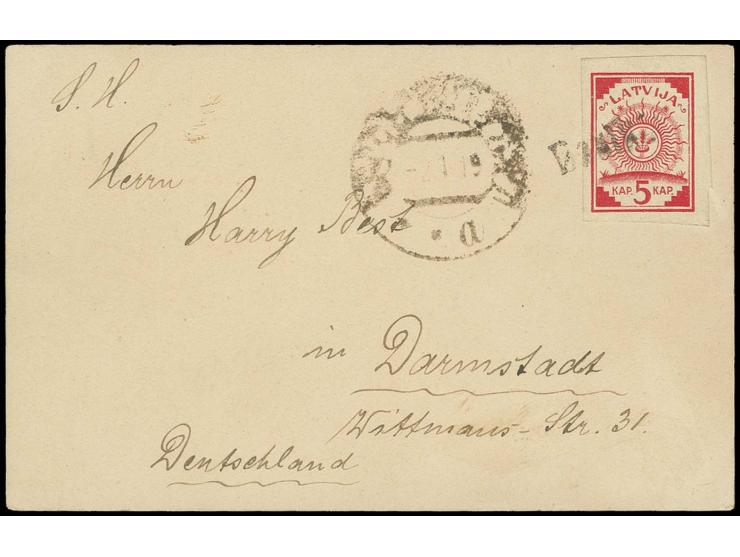 S. H.
Herrn
Harry Best
in Darmstadt
Wittmans-Str. 31.
Deutschland
LATVIJA
KAP. 5 KAP.
a